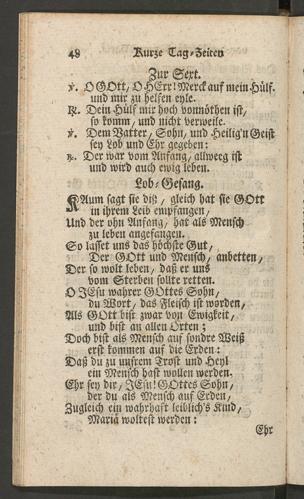 48 Kurze Tag-Zeiten
Zur Sext.
℣. O GOtt, O HErr! Merck auf mein Hülf.
und mir zu helfen eyle.
℟. Dein Hülf mir hoch vonnöthen ist,
so komm, und nicht verweile.
℣. Dem Vatter, Sohn, und Heilig'n Geist
sey Lob und Ehr gegeben:
℟. Der war vom Anfang, allweeg ist
und wird auch ewig leben.
Lob-Gesang.
KAum sagt sie diß, gleich hat sie GOtt
in ihrem Leib empfangen,
Und der ohn Anfang, hat als Mensch
zu leben angefangen.
So lasset uns das höchste Gut,
Der GOtt und Mensch, anbetten,
Der so wolt leben, daß er uns
vom Sterben sollte retten.
O JEsu wahrer GOttes Sohn,
du Wort, das Fleisch ist worden,
Als GOtt bist zwar von Ewigkeit,
und bist an allen Orten;
Doch bist als Mensch auf sondre Weiß
erst kommen auf die Erden:
Daß du zu unsrem Trost und Heyl
ein Mensch hast wollen werden.
Ehr sey dir, JEsu! GOttes Sohn,
der du als Mensch auf Erden,
Zugleich ein wahrhaft leiblich's Kind,
Mariä woltest werden:
Ehr